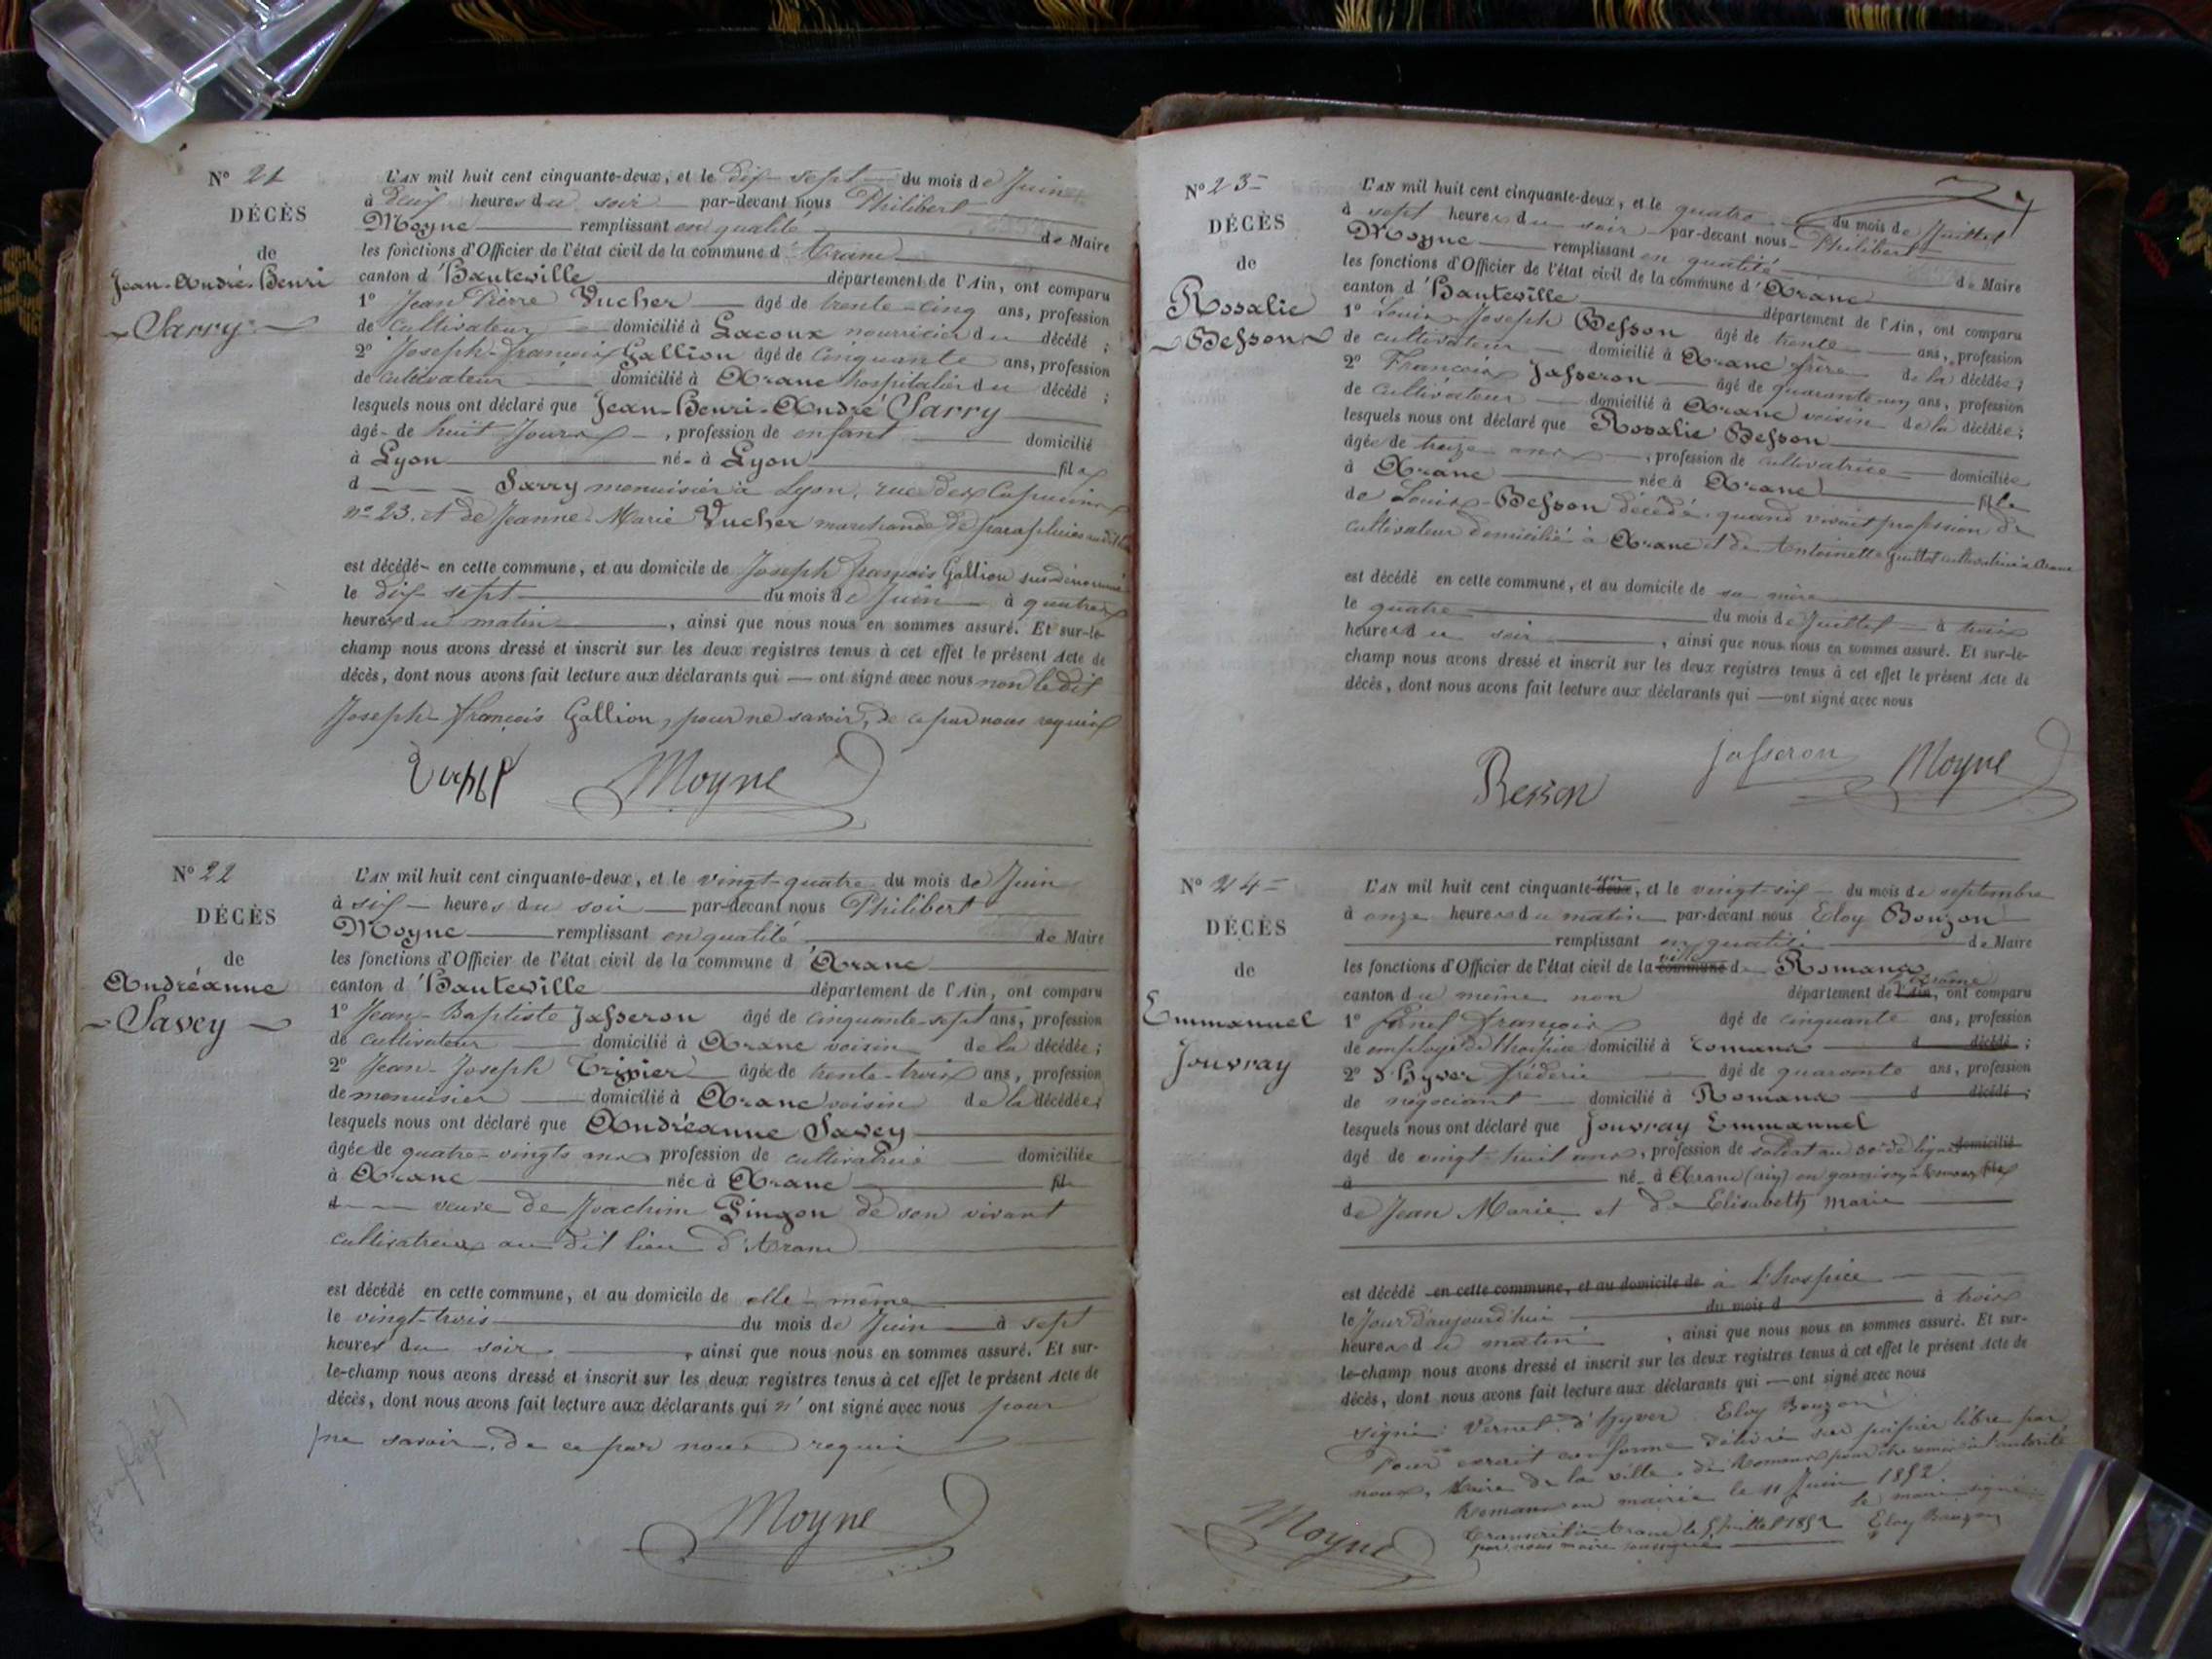 N° 21
DÉCÈS
de
Jean-André-Henri
Sarry
L'AN mil huit cent cinquante-deux, et le dix sept du mois de Juin
à deux heures du soir par-devant nous Philibert
Moyne remplissant en qualité de Maire
les fonctions d'Officier de l'état civil de la commune d'Arane
canton d'Hauteville département de l'Ain, ont comparu
1° Jean Pierre Vucher âgé de trente-cinq ans, profession
de cultivateur domicilié à Lacoux nourricier du décédé;
2° Joseph-François Gallion âgé de cinquante ans, profession
de cultivateur domicilié à Arane hospitalier du décédé;
lesquels nous ont déclaré que Jean-Henri-André Sarry
âgé de huit Jours, profession de enfant domicilié
à Lyon né à Lyon fils
d Sarry menuisier à Lyon, rue des Capucins
n° 23. et de Jeanne-Marie Vucher marchande de parapluies
est décédé en cette commune, et au domicile de Joseph François Gallion susdénommé
le dix sept du mois de Juin à quatre
heures du matin, ainsi que nous nous en sommes assuré. Et sur-le-
champ nous avons dressé et inscrit sur les deux registres tenus à cet effet le présent Acte de
décès, dont nous avons fait lecture aux déclarants qui ont signé avec nous non le dit
Joseph-François Gallion, pour ne savoir, de ce par nous requis
Moyne
N° 22
DÉCÈS
de
Andréanne
Savey
L'AN mil huit cent cinquante-deux, et le vingt-quatre du mois de Juin
à six heures du soir par-devant nous Philibert
Moyne remplissant en qualité de Maire
les fonctions d'Officier de l'état civil de la commune d'Arane
canton d'Hauteville département de l'Ain, ont comparu
1° Jean-Baptiste Josseron âgé de cinquante-sept ans, profession
de cultivateur domicilié à Arane voisin de la décédée;
2° Jean-Joseph Tripier âgé de trente-trois ans, profession
de menuisier domicilié à Arane voisin de la décédée;
lesquels nous ont déclaré que Andréanne Savey
âgée de quatre-vingts ans profession de cultivatrice domiciliée
à Arane née à Arane fil
d veuve de Joachim Pingon de son vivant
cultivateur au dit lieu d'Arane
est décédé en cette commune, et au domicile de elle-même
le vingt-trois du mois de Juin à sept
heures du soir, ainsi que nous nous en sommes assuré. Et sur-
le-champ nous avons dressé et inscrit sur les deux registres tenus à cet effet le présent Acte de
décès, dont nous avons fait lecture aux déclarants qui n'ont signé avec nous pour
ne savoir, de ce par nous requis
Moyne
N° 23
DÉCÈS
de
Rosalie
Besson
L'AN mil huit cent cinquante-deux, et le quatre du mois de Juillet
à sept heures du soir par-devant nous Philibert
Moyne remplissant en qualité de Maire
les fonctions d'Officier de l'état civil de la commune d'Arane
canton d'Hauteville département de l'Ain, ont comparu
1° Louis-Joseph Besson âgé de trente ans, profession
de cultivateur domicilié à Arane frère de la décédée;
2° François Josseron âgé de quarante un ans, profession
de cultivateur domicilié à Arane voisin de la décédée;
lesquels nous ont déclaré que Rosalie Besson
âgée de treize ans, profession de cultivatrice domiciliée
à Arane née à Arane fille
de Louis-Besson décédé quand vivait profession de
cultivateur domicilié à Arane et de Antoinette Guillot cultivatrice à Arane
est décédé en cette commune, et au domicile de sa mère
le quatre du mois de Juillet à trois
heures du soir, ainsi que nous nous en sommes assuré. Et sur-le-
champ nous avons dressé et inscrit sur les deux registres tenus à cet effet le présent Acte de
décès, dont nous avons fait lecture aux déclarants qui ont signé avec nous
Besson Josseron Moyne
N° 24
DÉCÈS
de
Emmanuel
Jouvray
L'AN mil huit cent cinquante-deux un, et le vingt-six du mois de septembre
à onze heures du matin par-devant nous Eloy Bouzon
remplissant en qualité de Maire
les fonctions d'Officier de l'état civil de la commune ville d Romans
canton du même nom département de l'Ain Drôme, ont comparu
1° François âgé de cinquante ans, profession
de employé de l'hospice domicilié à Romans d décédé;
2° d'hyver fréderic âgé de quarante ans, profession
de négociant domicilié à Romans d décédé;
lesquels nous ont déclaré que Jouvray Emmanuel
âgé de vingt-huit ans, profession de soldat au de ligne domicilié
à né à Arane (ain) en garnison à Romans fils
de Jean Marie et de Elisabeth Marie
est décédé en cette commune, et au domicile de à l'hospice
le Jour d'aujourd'hui du mois d à trois
heures du matin, ainsi que nous nous en sommes assuré. Et sur-
le-champ nous avons dressé et inscrit sur les deux registres tenus à cet effet le présent Acte de
décès, dont nous avons fait lecture aux déclarants qui ont signé avec nous
signé: Vernet. d'hyver Eloy Bouzon
Pour extrait conforme délivré sur papier libre par
nous, Maire de la ville de Romans pour autorité
Romans en mairie le 11 Juin 1852.
le maire signé
Transcrit à Arane le 5 Juillet 1852 Eloy Bouzon
par nous maire soussigné
Moyne